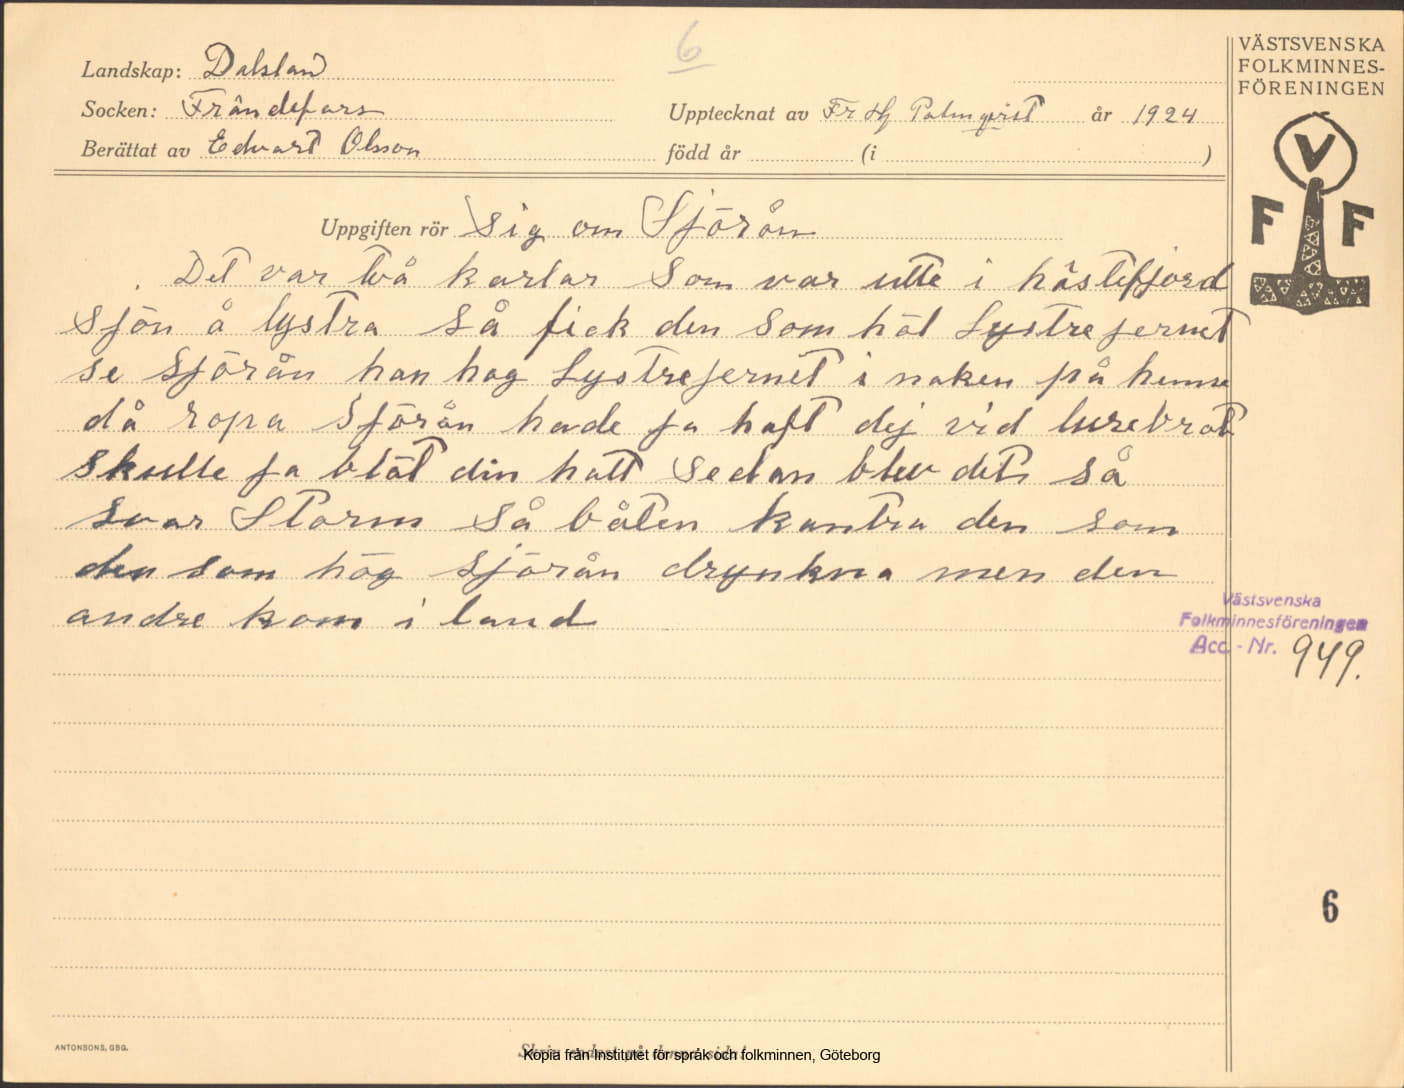 6
VÄSTSVENSKA
FOLKMINNES-
FÖRENINGEN
V
F F
Landskap: Dalsland
Socken: Frändefors
Upptecknat av Fr Hj Palmqvist år 1924
Berättat av Edvart Olsson född år (i )
Uppgiften rör Sig om Sjörån
Det var två karlar Som var utte i hästefjord
Sjön å lystra så fick den Som höl Lystrejernet
se Sjörån han hog Lystrejernet i naken på henne
då ropa Sjörån hade ja haft dej vid
skulle ja blöt din hatt Sedan blev det så
svar Storm Så båten kantra den som
den som hög sjörån drynkna men den
andre kom i land
Västsvenska
Folkminnesföreningen
Acc.-Nr. 949.
6
ANTONSONS, GBG.
Skriv endast på denna sida!
Kopia från Institutet för språk och folkminnen, Göteborg